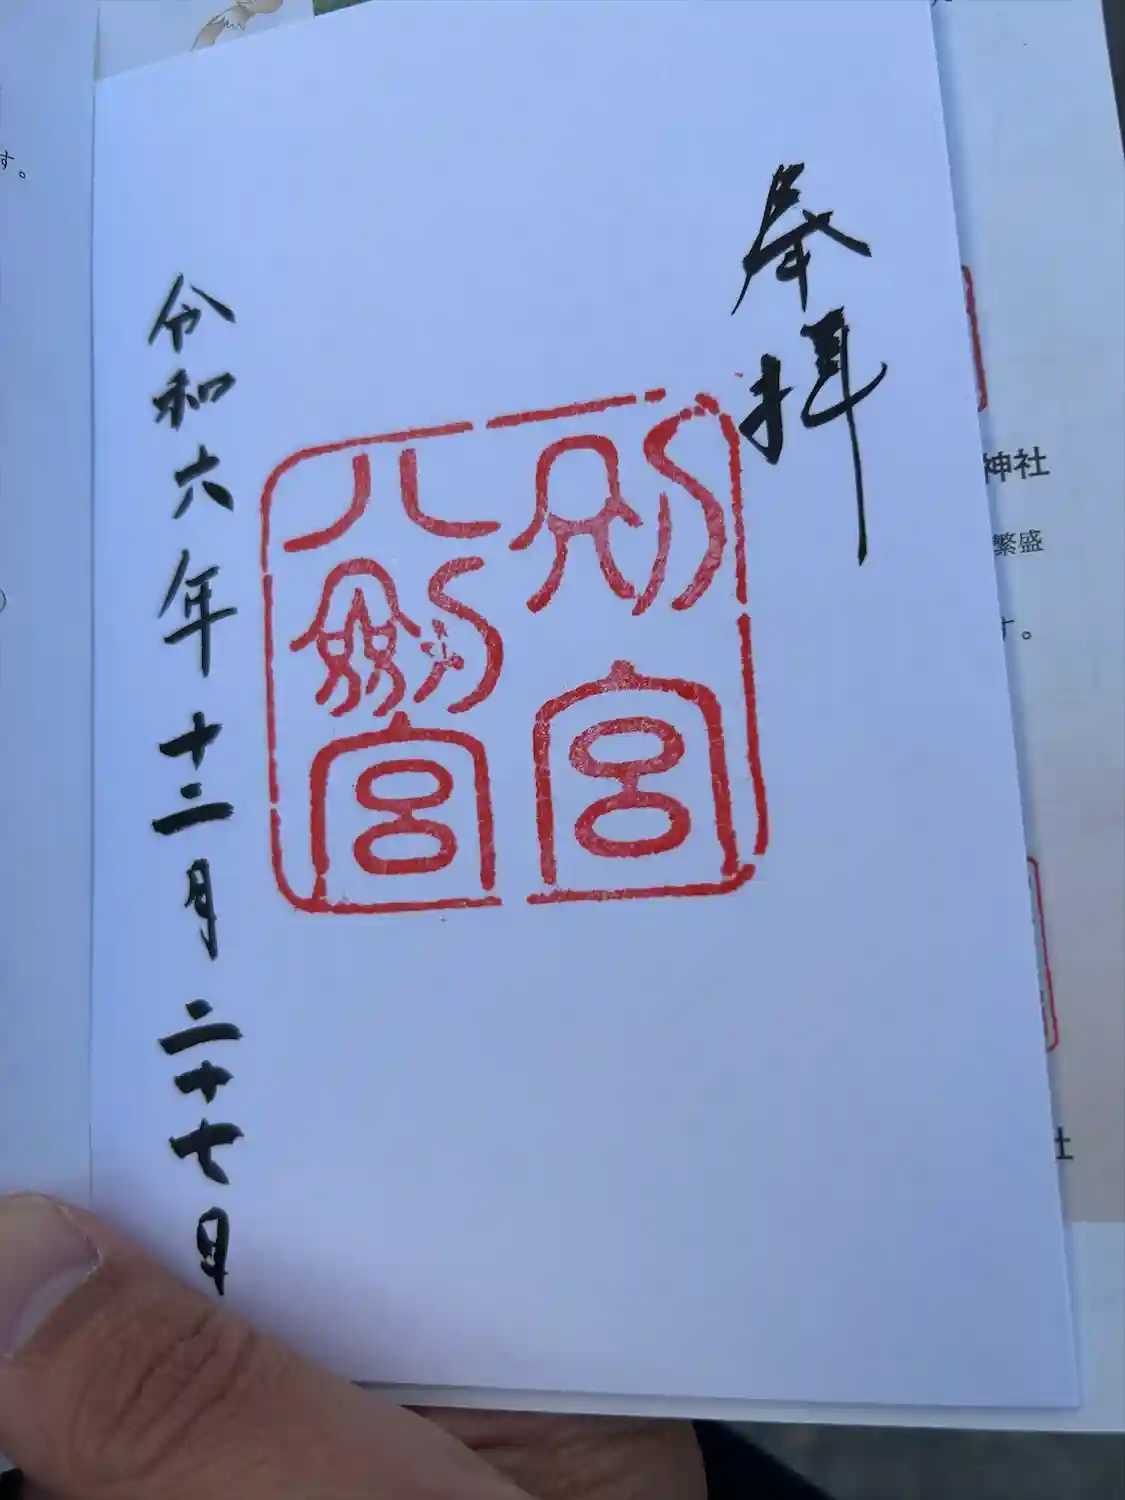 奉拝
別宮
八剱宮
令和六年十二月二十七日
神社
繁盛
す。
す。
社